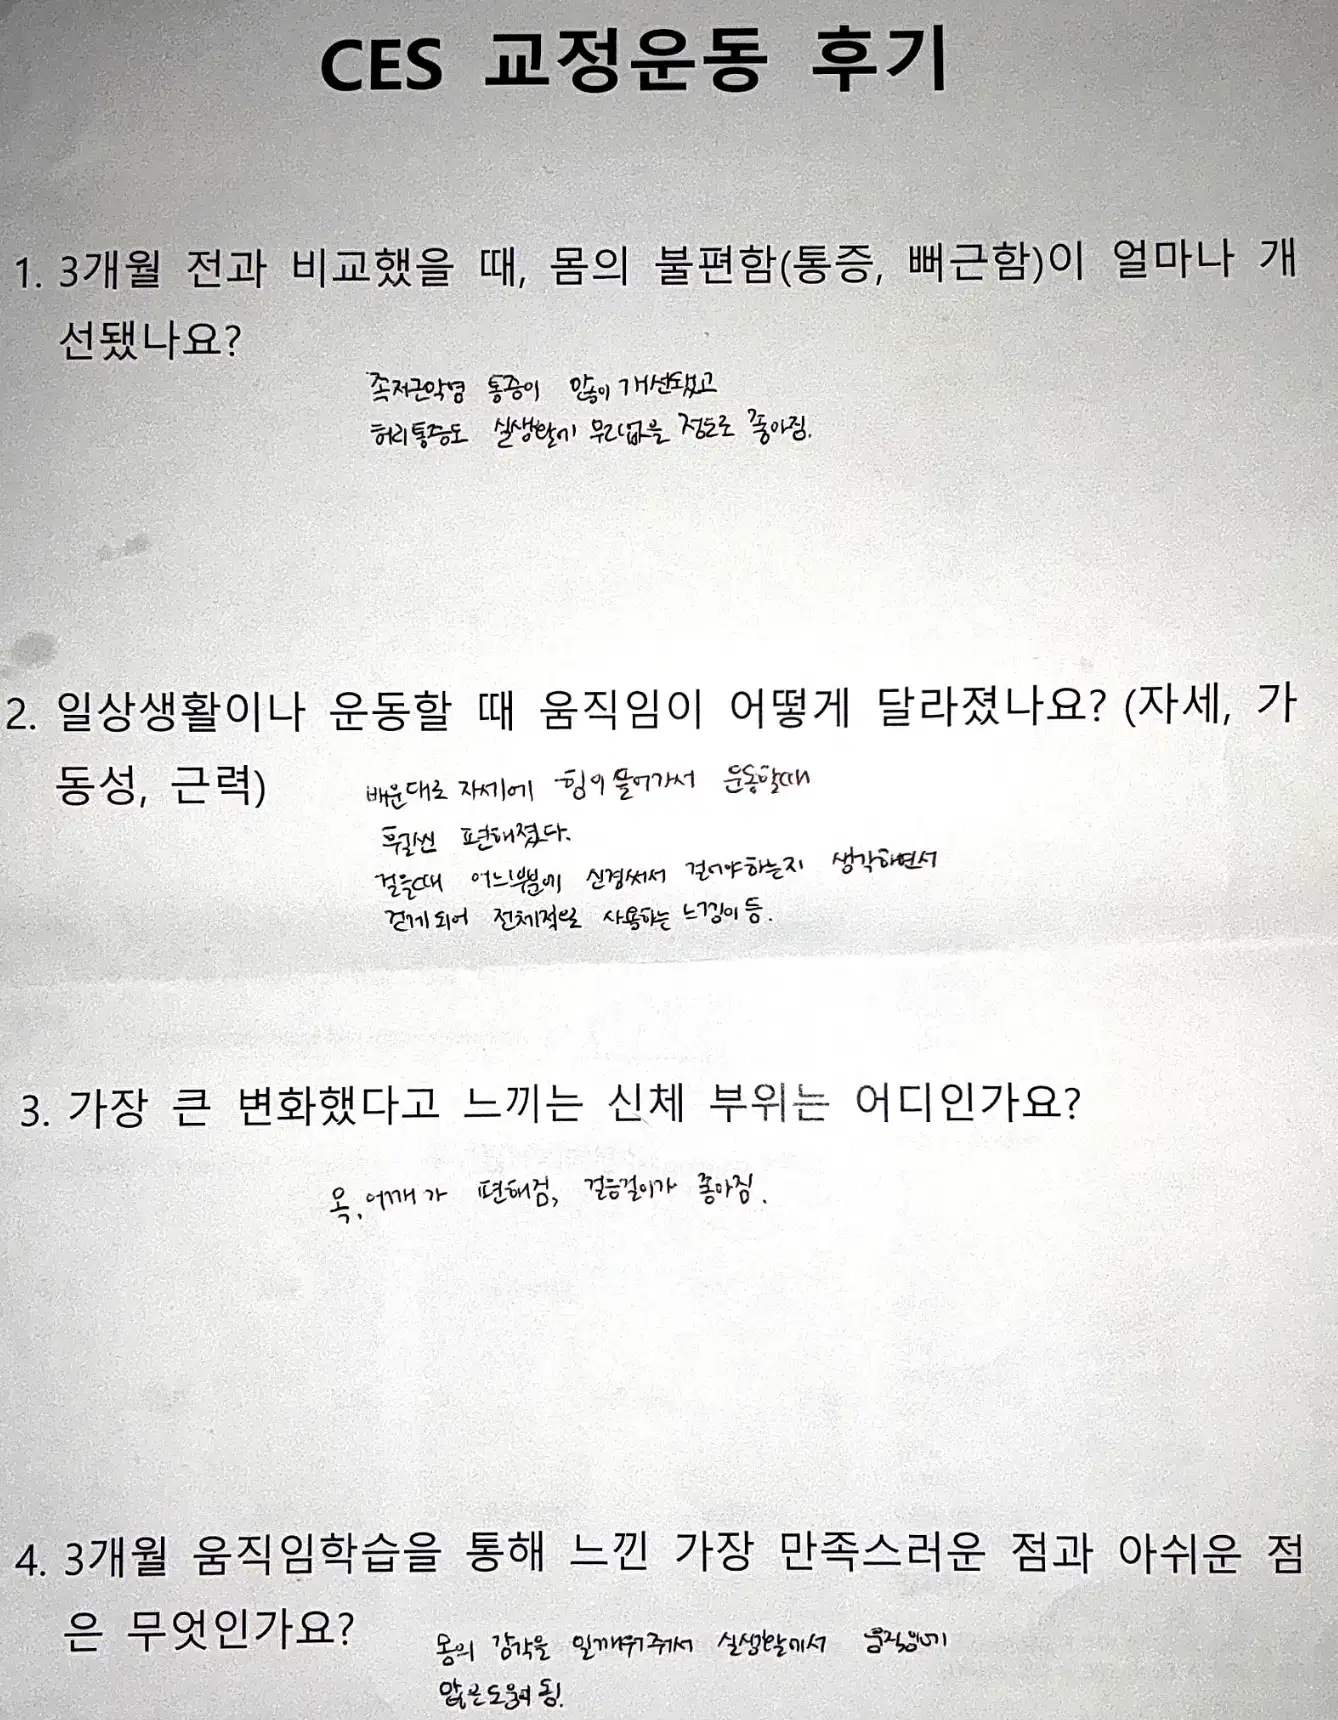 CES 교정운동 후기
1. 3개월 전과 비교했을 때, 몸의 불편함(통증, 뻐근함)이 얼마나 개
선됐나요?
족저근막염 통증이 많이 개선됐고
허리통증도 실생활에 무리없을 정도로 좋아짐.
2. 일상생활이나 운동할 때 움직임이 어떻게 달라졌나요? (자세, 가
동성, 근력)
배운대로 자세에 힘이 들어가서 운동할때
훨씬 편해졌다.
걸을때 어느부분에 신경써서 걸어야하는지 생각하면서
걷게 되어 전체적으로 사용하는 느낌이 듬.
3. 가장 큰 변화했다고 느끼는 신체 부위는 어디인가요?
목, 어깨가 편해짐, 걸음걸이가 좋아짐.
4. 3개월 움직임학습을 통해 느낀 가장 만족스러운 점과 아쉬운 점
은 무엇인가요?
몸의 감각을 일깨워줘서 실생활에서 움직임에
많은 도움이 됨.